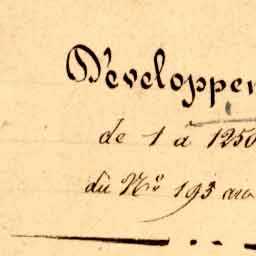 Développe
de 1 à 1250
du N° 193 au